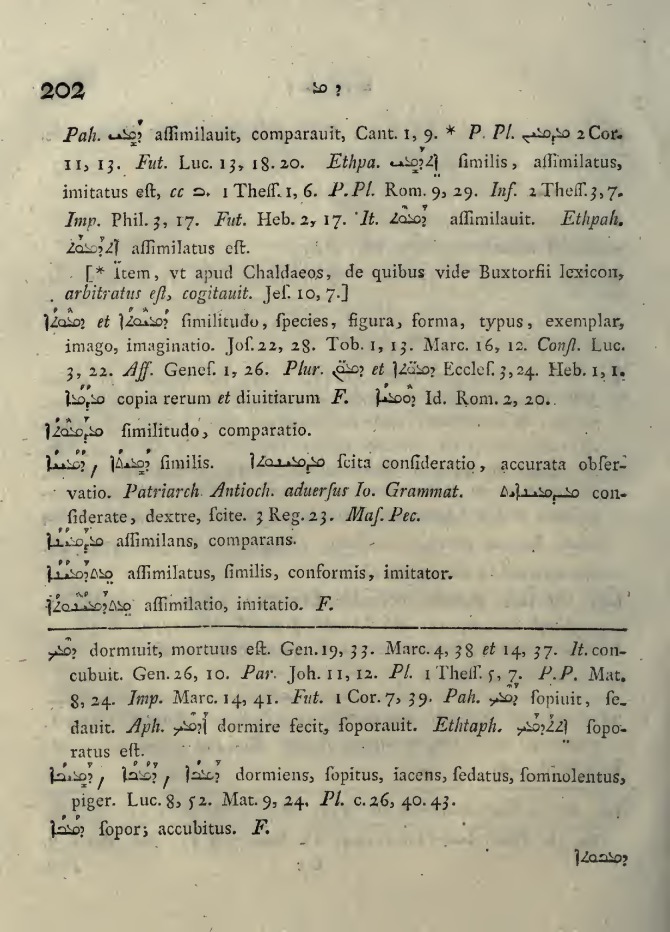 202 ܕ ܡ
Pah. ܕܡܝ aſſimilauit, comparauit, Cant. 1, 9. * P. Pl. ܡܕܡܝܢ 2 Cor.
11, 13. Fut. Luc. 13, 18. 20. Ethpa. ܐܬܕܡܝ ſimilis, aſſimilatus,
imitatus eſt, cc ב. 1 Theſſ. 1, 6. P. Pl. Rom. 9, 29. Inf. 2 Theſſ. 3, 7.
Imp. Phil. 3, 17. Fut. Heb. 2, 17. It. ܕܡܘܬ aſſimilauit. Ethpah.
ܐܬܕܡܘܬ aſſimilatus eſt.
[* Item, vt apud Chaldaeos, de quibus vide Buxtorfii lexicon,
arbitratus eſt, cogitauit. Jeſ. 10, 7.]
ܕܡܘܬܐ et ܕܡܝܘܬܐ ſimilitudo, ſpecies, figura, forma, typus, exemplar,
imago, imaginatio. Joſ. 22, 28. Tob. 1, 13. Marc. 16, 12. Conſt. Luc.
3, 22. Aff. Geneſ. 1, 26. Plur. et ܕܡ̈ܘܬܐ Eccleſ. 3, 24. Heb. 1, 1.
copia rerum et diuitiarum F. ܕܘܡܝܐ Id. Rom. 2, 20.
ܡܕܡܘܬܐ ſimilitudo, comparatio.
ܕܡܝܐ, ſimilis. ܡܕܡܝܢܘܬܐ ſcita conſideratio, accurata obſer-
vatio. Patriarch Antioch. aduerſus Io. Grammat. ܡܕܡܝܢܐܝܬ con-
ſiderate, dextre, ſcite. 3 Reg. 23. Maſ. Pec.
ܡܕܡܝܢܐ aſſimilans, comparans.
ܡܬܕܡܝܢܐ aſſimilatus, ſimilis, conformis, imitator.
ܡܬܕܡܝܢܘܬܐ aſſimilatio, imitatio. F.
ܕܡܟ dormiuit, mortuus eſt. Gen. 19, 33. Marc. 4, 38 et 14, 37. It. con-
cubuit. Gen. 26, 10. Par. Joh. 11, 12. Pl. 1 Theſſ. 5, 7. P. P. Mat.
8, 24. Imp. Marc. 14, 41. Fut. 1 Cor. 7, 39. Pah. ܕܡܟ ſopiuit, ſe-
dauit. Aph. ܐܕܡܟ dormire fecit, ſoporauit. Ethtaph. ܐܬܬܕܡܟ ſopo-
ratus eſt.
ܕܡܝܟܐ, ܕܡܟܐ, ܕܡܟܐ dormiens, ſopitus, iacens, ſedatus, ſomnolentus,
piger. Luc. 8, 52. Mat. 9, 24. Pl. c. 26, 40. 43.
ܕܡܟܐ ſopor; accubitus. F.
ܕܡܟܘܬܐ